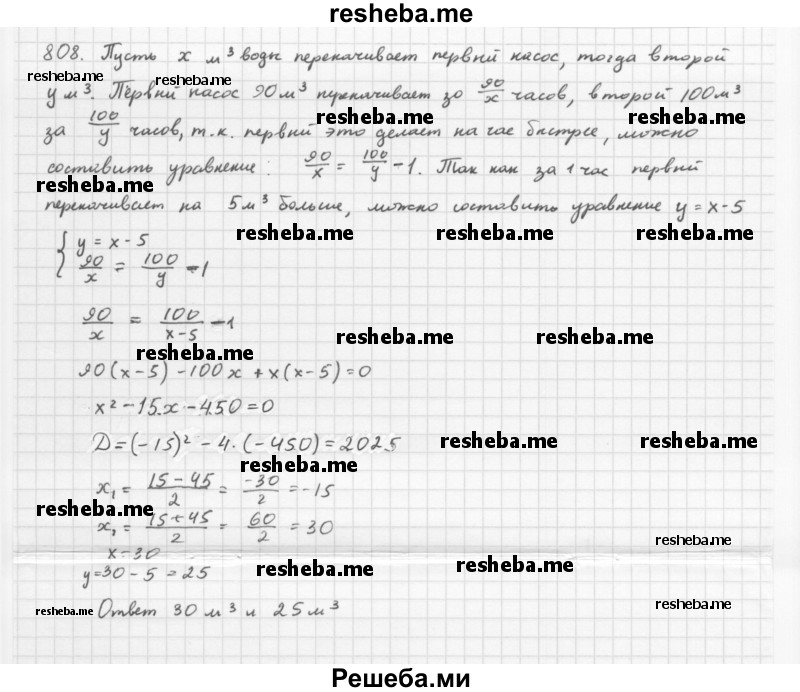 resheba.me
808. Пусть x м³ воды перекачивает первый насос, тогда второй
resheba.me resheba.me
y м³. Первый насос 90м³ перекачивает за 90/x часов, второй 100м³
resheba.me resheba.me resheba.me
за 100/y часов, т.к. первый это делает на час быстрее, можно
составить уравнение: 90/x = 100/y - 1. Так как за 1 час первый
resheba.me
перекачивает на 5м³ больше, можно составить уравнение y = x-5
resheba.me resheba.me resheba.me
{ y = x - 5
90/x = 100/y - 1
90/x = 100/x-5 - 1
resheba.me resheba.me
resheba.me
90(x-5) - 100x + x(x-5) = 0
x² - 15x - 450 = 0
D = (-15)² - 4·(-450) = 2025
resheba.me resheba.me
resheba.me
x₁ = 15-45/2 = -30/2 = -15
resheba.me
x₂ = 15+45/2 = 60/2 = 30
x=30
resheba.me
y=30-5=25
resheba.me resheba.me
resheba.me Ответ 30 м³ и 25 м³
resheba.me
Решеба.ми